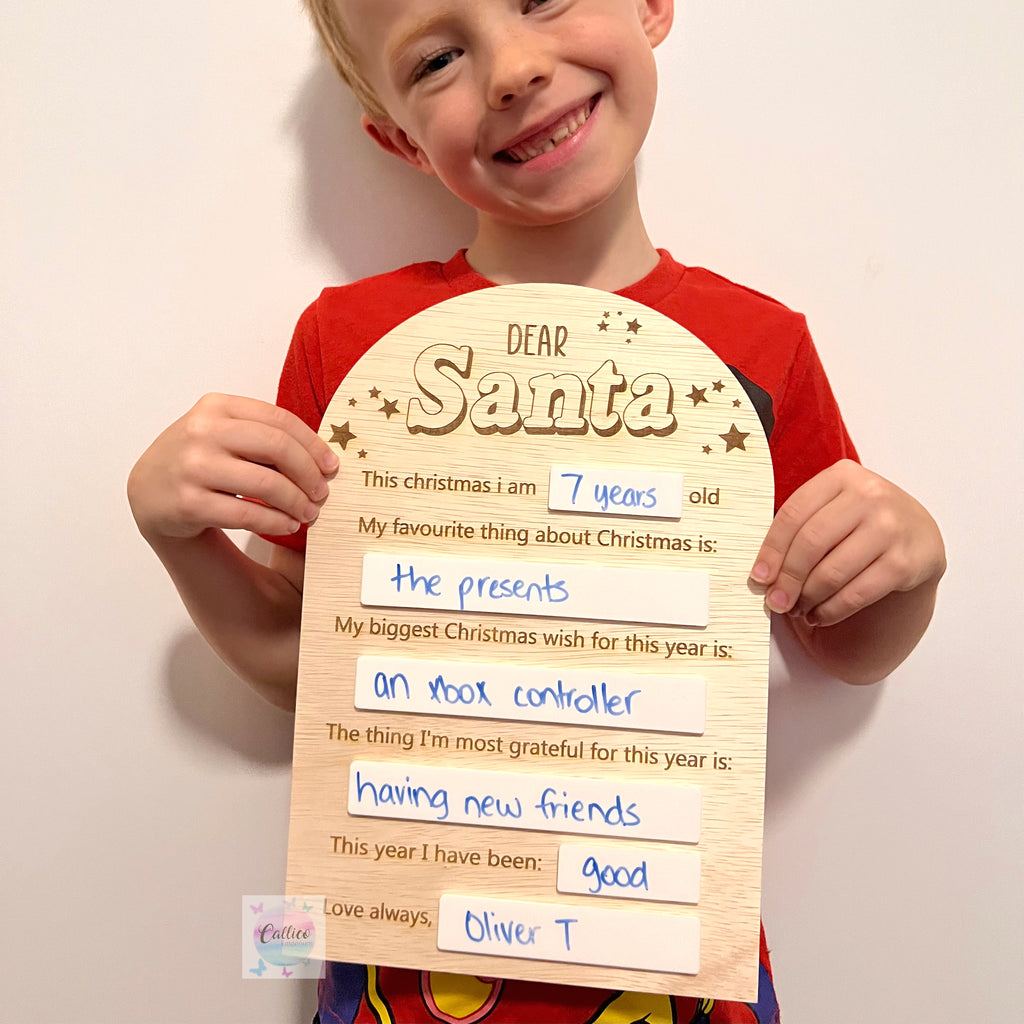 DEAR
Santa
This christmas i am 7 years old
My favourite thing about Christmas is:
the presents
My biggest Christmas wish for this year is:
an xbox controller
The thing I'm most grateful for this year is:
having new friends
This year I have been: good
Love always, Oliver T
Callico
Emporium